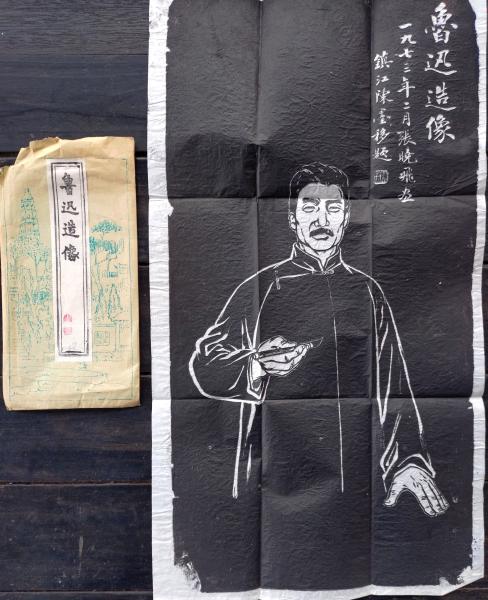 魯迅造像
一九七三年二月張曉飛畫
鎮江陳墨移題
魯迅造像